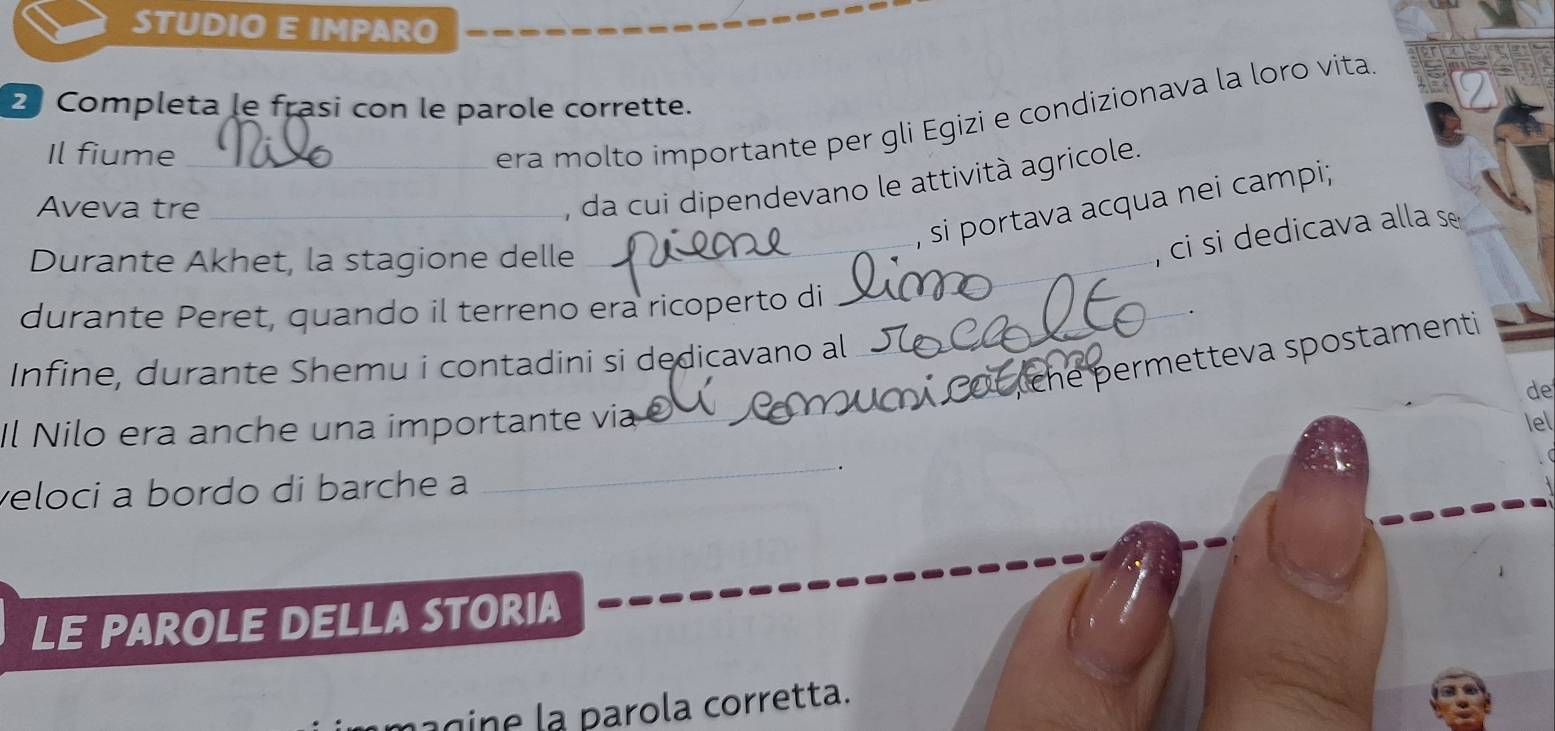 STUDIO E IMPARO
2 Completa le frasi con le parole corrette.
Il fiume Nilo era molto importante per gli Egizi e condizionava la loro vita.
Aveva tre , da cui dipendevano le attività agricole.
Durante Akhet, la stagione delle piene , si portava acqua nei campi;
durante Peret, quando il terreno era ricoperto di limo , ci si dedicava alla se
Infine, durante Shemu i contadini si dedicavano al raccolto .
Il Nilo era anche una importante via di comunicazione , che permetteva spostamenti
veloci a bordo di barche a .
LE PAROLE DELLA STORIA
immagine la parola corretta.